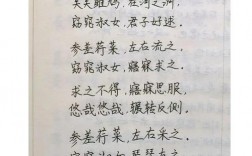 关关雎鸠,在河之洲。
窈窕淑女,君子好逑。
参差荇菜,左右流之。
窈窕淑女,寤寐求之。
求之不得,寤寐思服,
悠哉悠哉,辗转反侧。
参差荇菜,左右采之。
窈窕淑女,琴瑟友之。